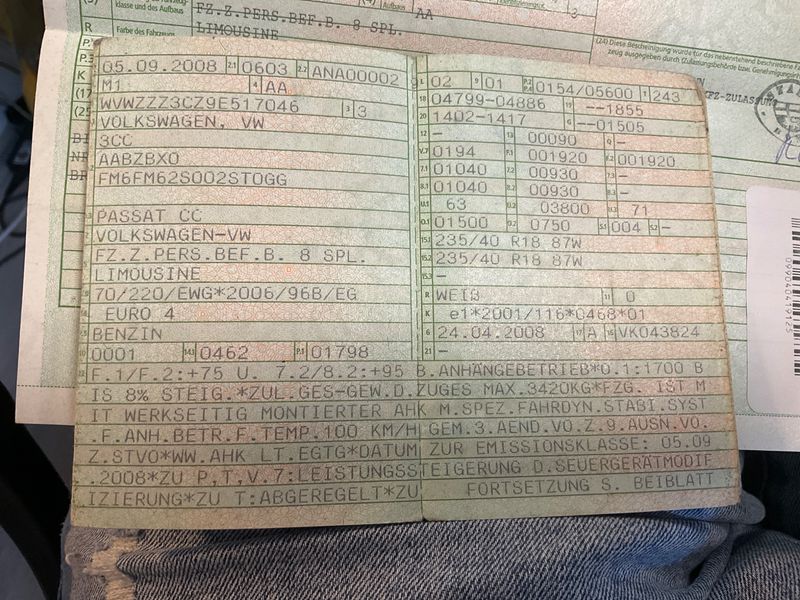 klasse und des Aufbaus
FZ.Z.PERS.BEF.B. 8 SPL.
AA
3
R Farbe des Fahrzeugs
LIMOUSINE
(24) Diese Bescheinigung wurde für das nebenstehend beschriebene
zeug ausgegeben durch (Zulassungsbehörde bzw. Genehmigungs
KFZ-ZULASSUNG
05.09.2008 2.1 0603 2.2 ANA00002
M1 4 AA
WVWZZZ3CZ9E517046 3 3
VOLKSWAGEN, VW
3CC
AABZBX0
FM6FM62S002STOGG
PASSAT CC
VOLKSWAGEN-VW
FZ.Z.PERS.BEF.B. 8 SPL.
LIMOUSINE
70/220/EWG*2006/96B/EG
EURO 4
BENZIN
0001 14.1 0462 P.1 01798
L 02 9 01 P.2 P.4 0154/05600 T 243
18 04799-04886 19 --1855
20 1402-1417 G --01505
12 - 13 00090 Q -
V.7 0194 F.1 001920 F.2 001920
7.1 01040 7.2 00930 7.3 -
8.1 01040 8.2 00930 8.3 -
U.1 63 U.2 03800 U.3 71
O.1 01500 O.2 0750 S.1 004 S.2 -
15.1 235/40 R18 87W
15.2 235/40 R18 87W
15.3 -
R WEIß 11 0
K e1*2001/116*0468*01
6 24.04.2008 17 A 16 VK043824
21 -
22 F.1/F.2:+75 U. 7.2/8.2:+95 B.ANHÄNGEBETRIEB*O.1:1700 B
IS 8% STEIG.*ZUL.GES-GEW.D.ZUGES MAX.3420KG*FZG. IST M
IT WERKSEITIG MONTIERTER AHK M.SPEZ.FAHRDYN.STABI.SYST
.F.ANH.BETR.F.TEMP.100 KM/H GEM.3.AEND.VO.Z.9.AUSN.VO.
Z.STVO*WW.AHK LT.EGTG*DATUM ZUR EMISSIONSKLASSE: 05.09
.2008*ZU P,T,V.7:LEISTUNGSSTEIGERUNG D.SEUERGERÄTMODIF
IZIERUNG*ZU T:ABGEREGELT*ZU FORTSETZUNG S. BEIBLATT